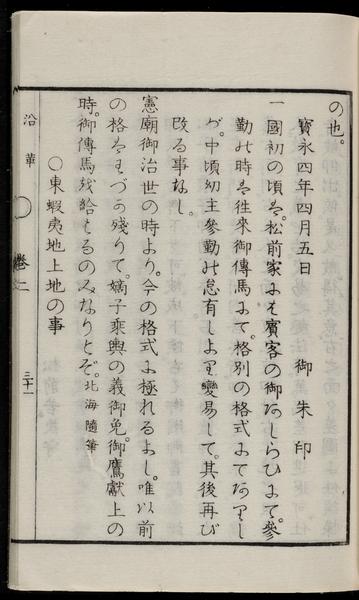 の也。
寳永四年四月五日　御朱印
一國初の頃は、松前家には賓客の御あしらひにて、參
勤の時は往來御傳馬にて、格別の格式にてありし
が、中頃幼主參勤の怠有しより變易して、其後再び
改る事なし。
憲廟御治世の時より、今の格式に極れるよし。唯以前
の格はわづか殘りて、嫡子乘輿の義御免、御鷹獻上の
時、御傳馬殘給はるのみなりとぞ。北海隨筆
○東蝦夷地上地の事
沿革　卷一　三十一